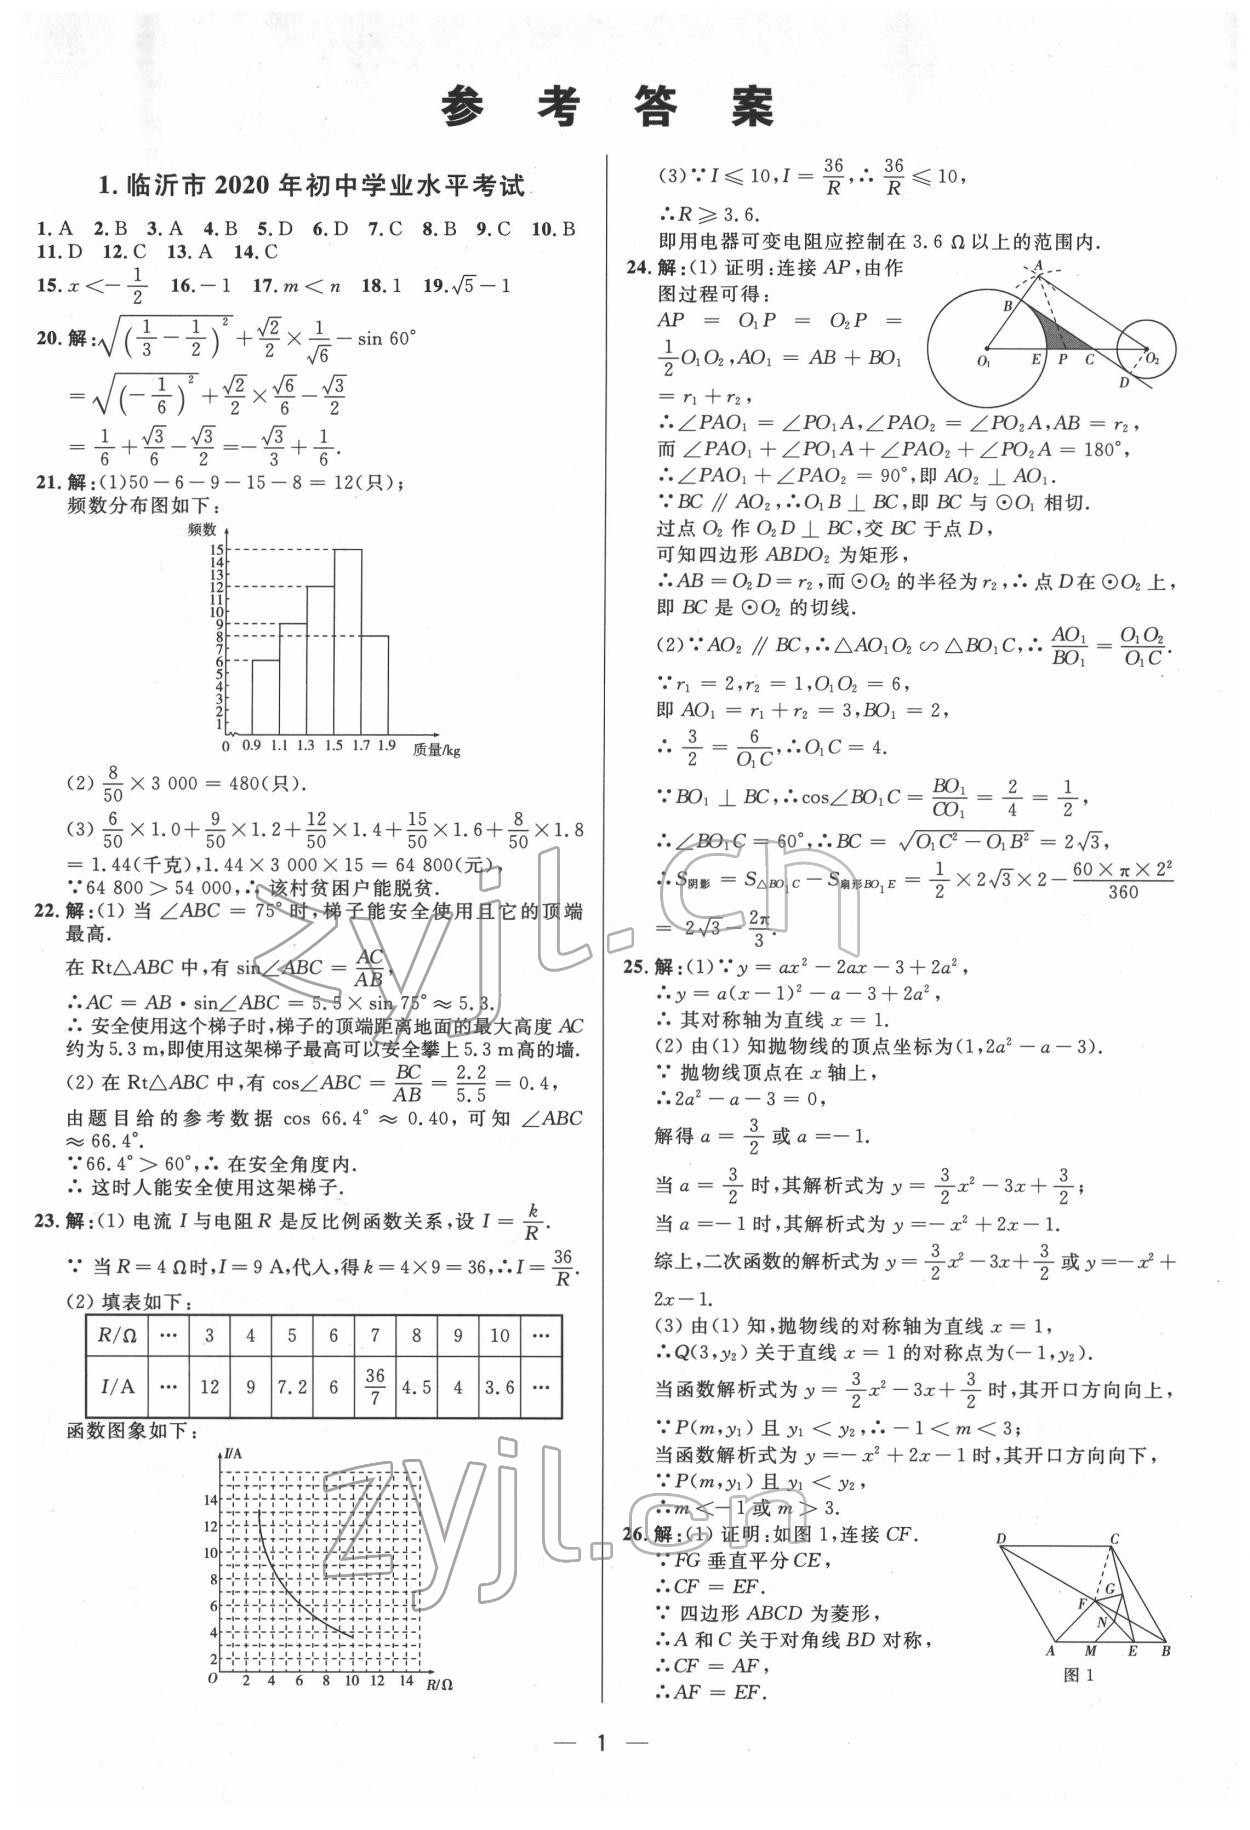 参 考 答 案
1. 临沂市 2020 年初中学业水平考试
1. A 2. B 3. A 4. B 5. D 6. D 7. C 8. B 9. C 10. B
11. D 12. C 13. A 14. C
15. x<-1/2 16. -1 17. m<n 18. 1 19. √5-1
20. 解:√(1/3-1/2)²+√2/2×1/√6-sin 60°
=√(-1/6)²+√2/2×√6/6-√3/2
=1/6+√3/6-√3/2=-√3/3+1/6.
21. 解:(1)50-6-9-15-8=12(只);
频数分布图如下:
频数
15
14
13
12
11
10
9
8
7
6
5
4
3
2
1
0 0.9 1.1 1.3 1.5 1.7 1.9 质量/kg
(2)8/50×3 000=480(只).
(3)6/50×1.0+9/50×1.2+12/50×1.4+15/50×1.6+8/50×1.8
=1.44(千克),1.44×3 000×15=64 800(元),
∵64 800>54 000,∴该村贫困户能脱贫.
22. 解:(1)当∠ABC=75°时,梯子能安全使用且它的顶端
最高.
在Rt△ABC中,有sin∠ABC=AC/AB,
∴AC=AB·sin∠ABC=5.5×sin 75°≈5.3.
∴安全使用这个梯子时,梯子的顶端距离地面的最大高度AC
约为5.3 m,即使用这架梯子最高可以安全攀上5.3 m高的墙.
(2)在Rt△ABC中,有cos∠ABC=BC/AB=2.2/5.5=0.4,
由题目给的参考数据cos 66.4°≈0.40,可知∠ABC
≈66.4°.
∵66.4°>60°,∴在安全角度内.
∴这时人能安全使用这架梯子.
23. 解:(1)电流I与电阻R是反比例函数关系,设I=k/R.
∵当R=4 Ω时,I=9 A,代人,得k=4×9=36,∴I=36/R.
(2)填表如下:
R/Ω … 3 4 5 6 7 8 9 10 …
I/A … 12 9 7.2 6 36/7 4.5 4 3.6 …
函数图象如下:
I/A
14
12
10
8
6
4
2
O 2 4 6 8 10 12 14 R/Ω
(3)∵I⩽10,I=36/R,∴36/R⩽10,
∴R⩾3.6.
即用电器可变电阻应控制在3.6 Ω以上的范围内.
24. 解:(1)证明:连接AP,由作
图过程可得:
AP=O₁P=O₂P=
1/2O₁O₂,AO₁=AB+BO₁
=r₁+r₂,
A
B
O₁ E P C O₂
D
∴∠PAO₁=∠PO₁A,∠PAO₂=∠PO₂A,AB=r₂,
而∠PAO₁+∠PO₁A+∠PAO₂+∠PO₂A=180°,
∴∠PAO₁+∠PAO₂=90°,即AO₂⊥AO₁.
∵BC∥AO₂,∴O₁B⊥BC,即BC与⊙O₁相切.
过点O₂作O₂D⊥BC,交BC于点D,
可知四边形ABDO₂为矩形,
∴AB=O₂D=r₂,而⊙O₂的半径为r₂,∴点D在⊙O₂上,
即BC是⊙O₂的切线.
(2)∵AO₂∥BC,∴△AO₁O₂∽△BO₁C,∴AO₁/BO₁=O₁O₂/O₁C.
∵r₁=2,r₂=1,O₁O₂=6,
即AO₁=r₁+r₂=3,BO₁=2,
∴3/2=6/O₁C,∴O₁C=4.
∵BO₁⊥BC,∴cos∠BO₁C=BO₁/CO₁=2/4=1/2,
∴∠BO₁C=60°,∴BC=√(O₁C²-O₁B²)=2√3,
∴S阴影=S△BO₁C-S扇形BO₁E=1/2×2√3×2-60×π×2²/360
=2√3-2π/3.
25. 解:(1)∵y=ax²-2ax-3+2a²,
∴y=a(x-1)²-a-3+2a²,
∴其对称轴为直线x=1.
(2)由(1)知抛物线的顶点坐标为(1,2a²-a-3).
∵抛物线顶点在x轴上,
∴2a²-a-3=0,
解得a=3/2或a=-1.
当a=3/2时,其解析式为y=3/2x²-3x+3/2;
当a=-1时,其解析式为y=-x²+2x-1.
综上,二次函数的解析式为y=3/2x²-3x+3/2或y=-x²+
2x-1.
(3)由(1)知,抛物线的对称轴为直线x=1,
∴Q(3,y₂)关于直线x=1的对称点为(-1,y₂).
当函数解析式为y=3/2x²-3x+3/2时,其开口方向向上,
∵P(m,y₁)且y₁<y₂,∴-1<m<3;
当函数解析式为y=-x²+2x-1时,其开口方向向下,
∵P(m,y₁)且y₁<y₂,
∴m<-1或m>3.
26. 解:(1)证明:如图1,连接CF.
∵FG垂直平分CE,
∴CF=EF.
∵四边形ABCD为菱形,
∴A和C关于对角线BD对称,
∴CF=AF,
∴AF=EF.
D C
G
F
N
A M E B
图1
— 1 —
zyjl.cn
zyjl.cn